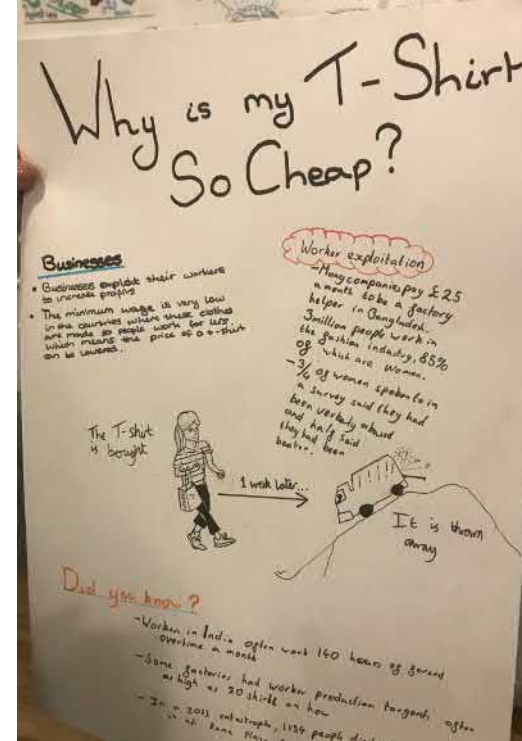 Why is my T-Shirt
So Cheap?
Businesses
• Businesses exploit their workers
to increase profits
• The minimum wage is very low
in the countries where these clothes
are made so people work for less
which means the price of a t-shirt
can be lowered.
Worker exploitation
- Many companies pay £25
a month to be a factory
helper in Bangladesh.
3million people work in
the fashion industry, 85%
of which are women.
- 3/4 of women spoken to in
a survey said they had
been verbally abused
and half said
they had been
beaten.
The T-shirt
is bought
1 week later...
It is thrown
away
Did you know?
- Workers in India often work 140 hours of forced
overtime a month
- Some factories had worker production targets, often
as high as 20 shirts an hour
- In a 2013 catastrophe, 1134 people died
in Rana Plaza